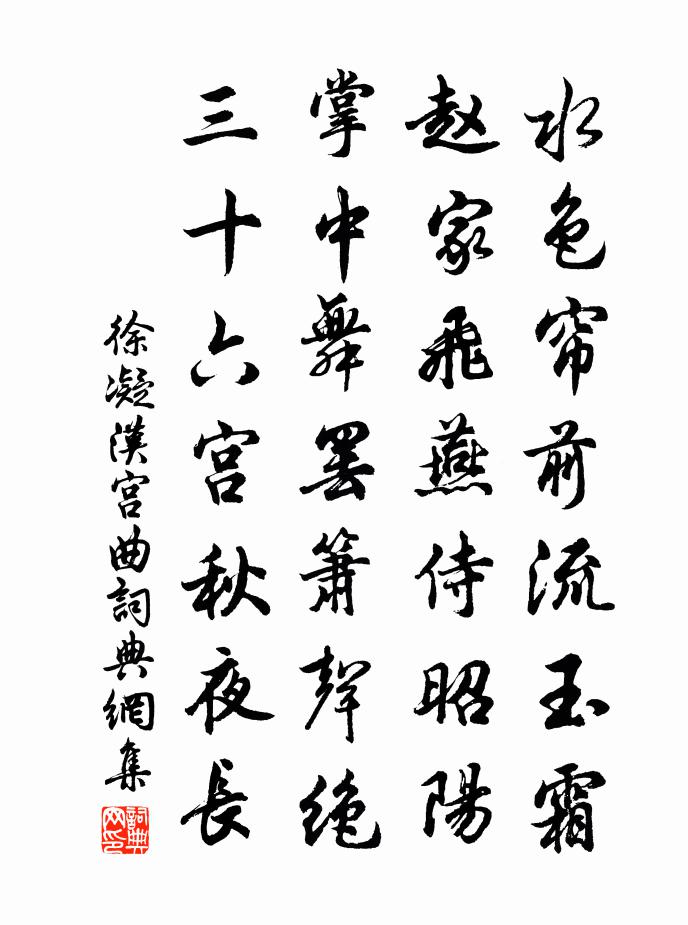 水色帘前流玉霜
赵家飛燕侍昭陽
掌中舞罢簫聲绝
三十六宫秋夜長
徐凝漢宫曲詞典網集
詞典网印